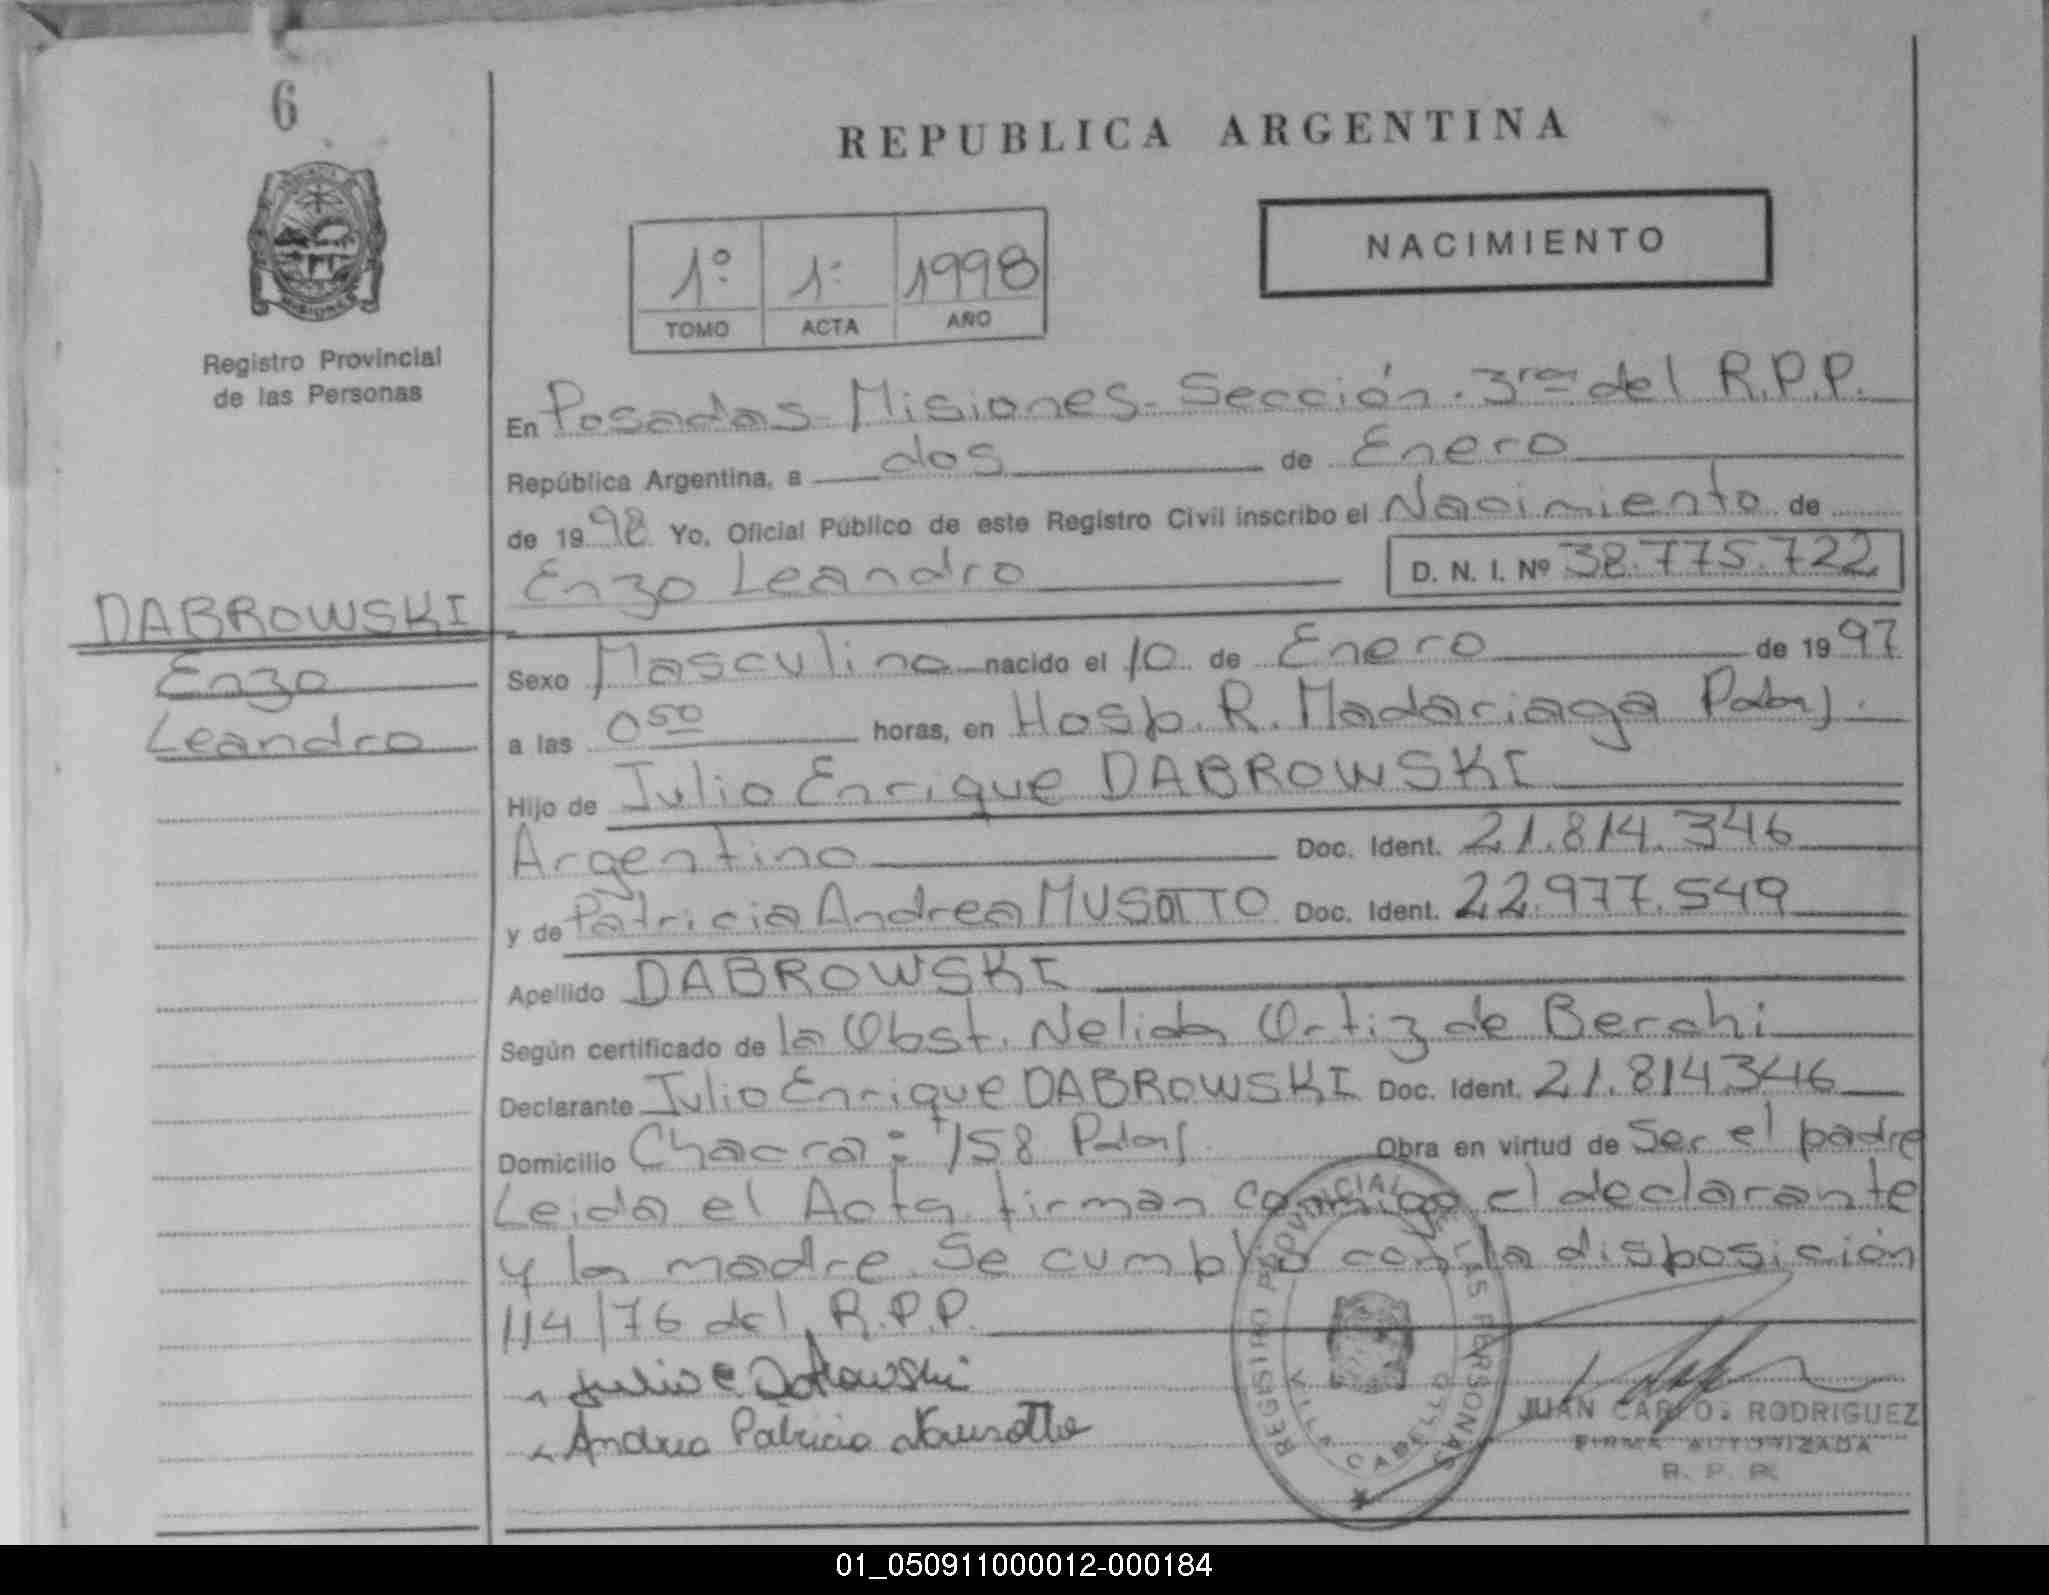 6
REPUBLICA ARGENTINA
NACIMIENTO
1º 1: 1998
TOMO ACTA AÑO
Registro Provincial
de las Personas
En Posadas - Misiones - Sección - 3ra del R.P.P.
República Argentina, a dos de Enero
de 1998 Yo, Oficial Público de este Registro Civil inscribo el Nacimiento de
Enzo Leandro D. N. I. Nº 38.775.722
DABROWSKI
Enzo
Leandro
Sexo Masculino nacido el 10 de Enero de 1997
a las 0 50 horas, en Hosp. R. Madariaga Pdas.
Hijo de Julio Enrique DABROWSKI
Argentino Doc. Ident. 21.814.346
y de Patricia Andrea MUSATTO Doc. Ident. 22.977.549
Apellido DABROWSKI
Según certificado de la Obst. Nelida Ortiz de Berchi
Declarante Julio Enrique DABROWSKI Doc. Ident. 21.814346
Domicilio Chacra: 158 Pdas. Obra en virtud de Ser el padre
Leida el Acta firman conmigo el declarante
y la madre. Se cumplio con la disposición
114/76 del R.P.P.
Julio E Dabrowski
Andrea Patricia
REGISTRO PROVINCIAL DE LAS PERSONAS
VILLA CABELLO
JUAN CARLOS RODRIGUEZ
FIRMA AUTORIZADA
R. P. P.
01_050911000012-000184